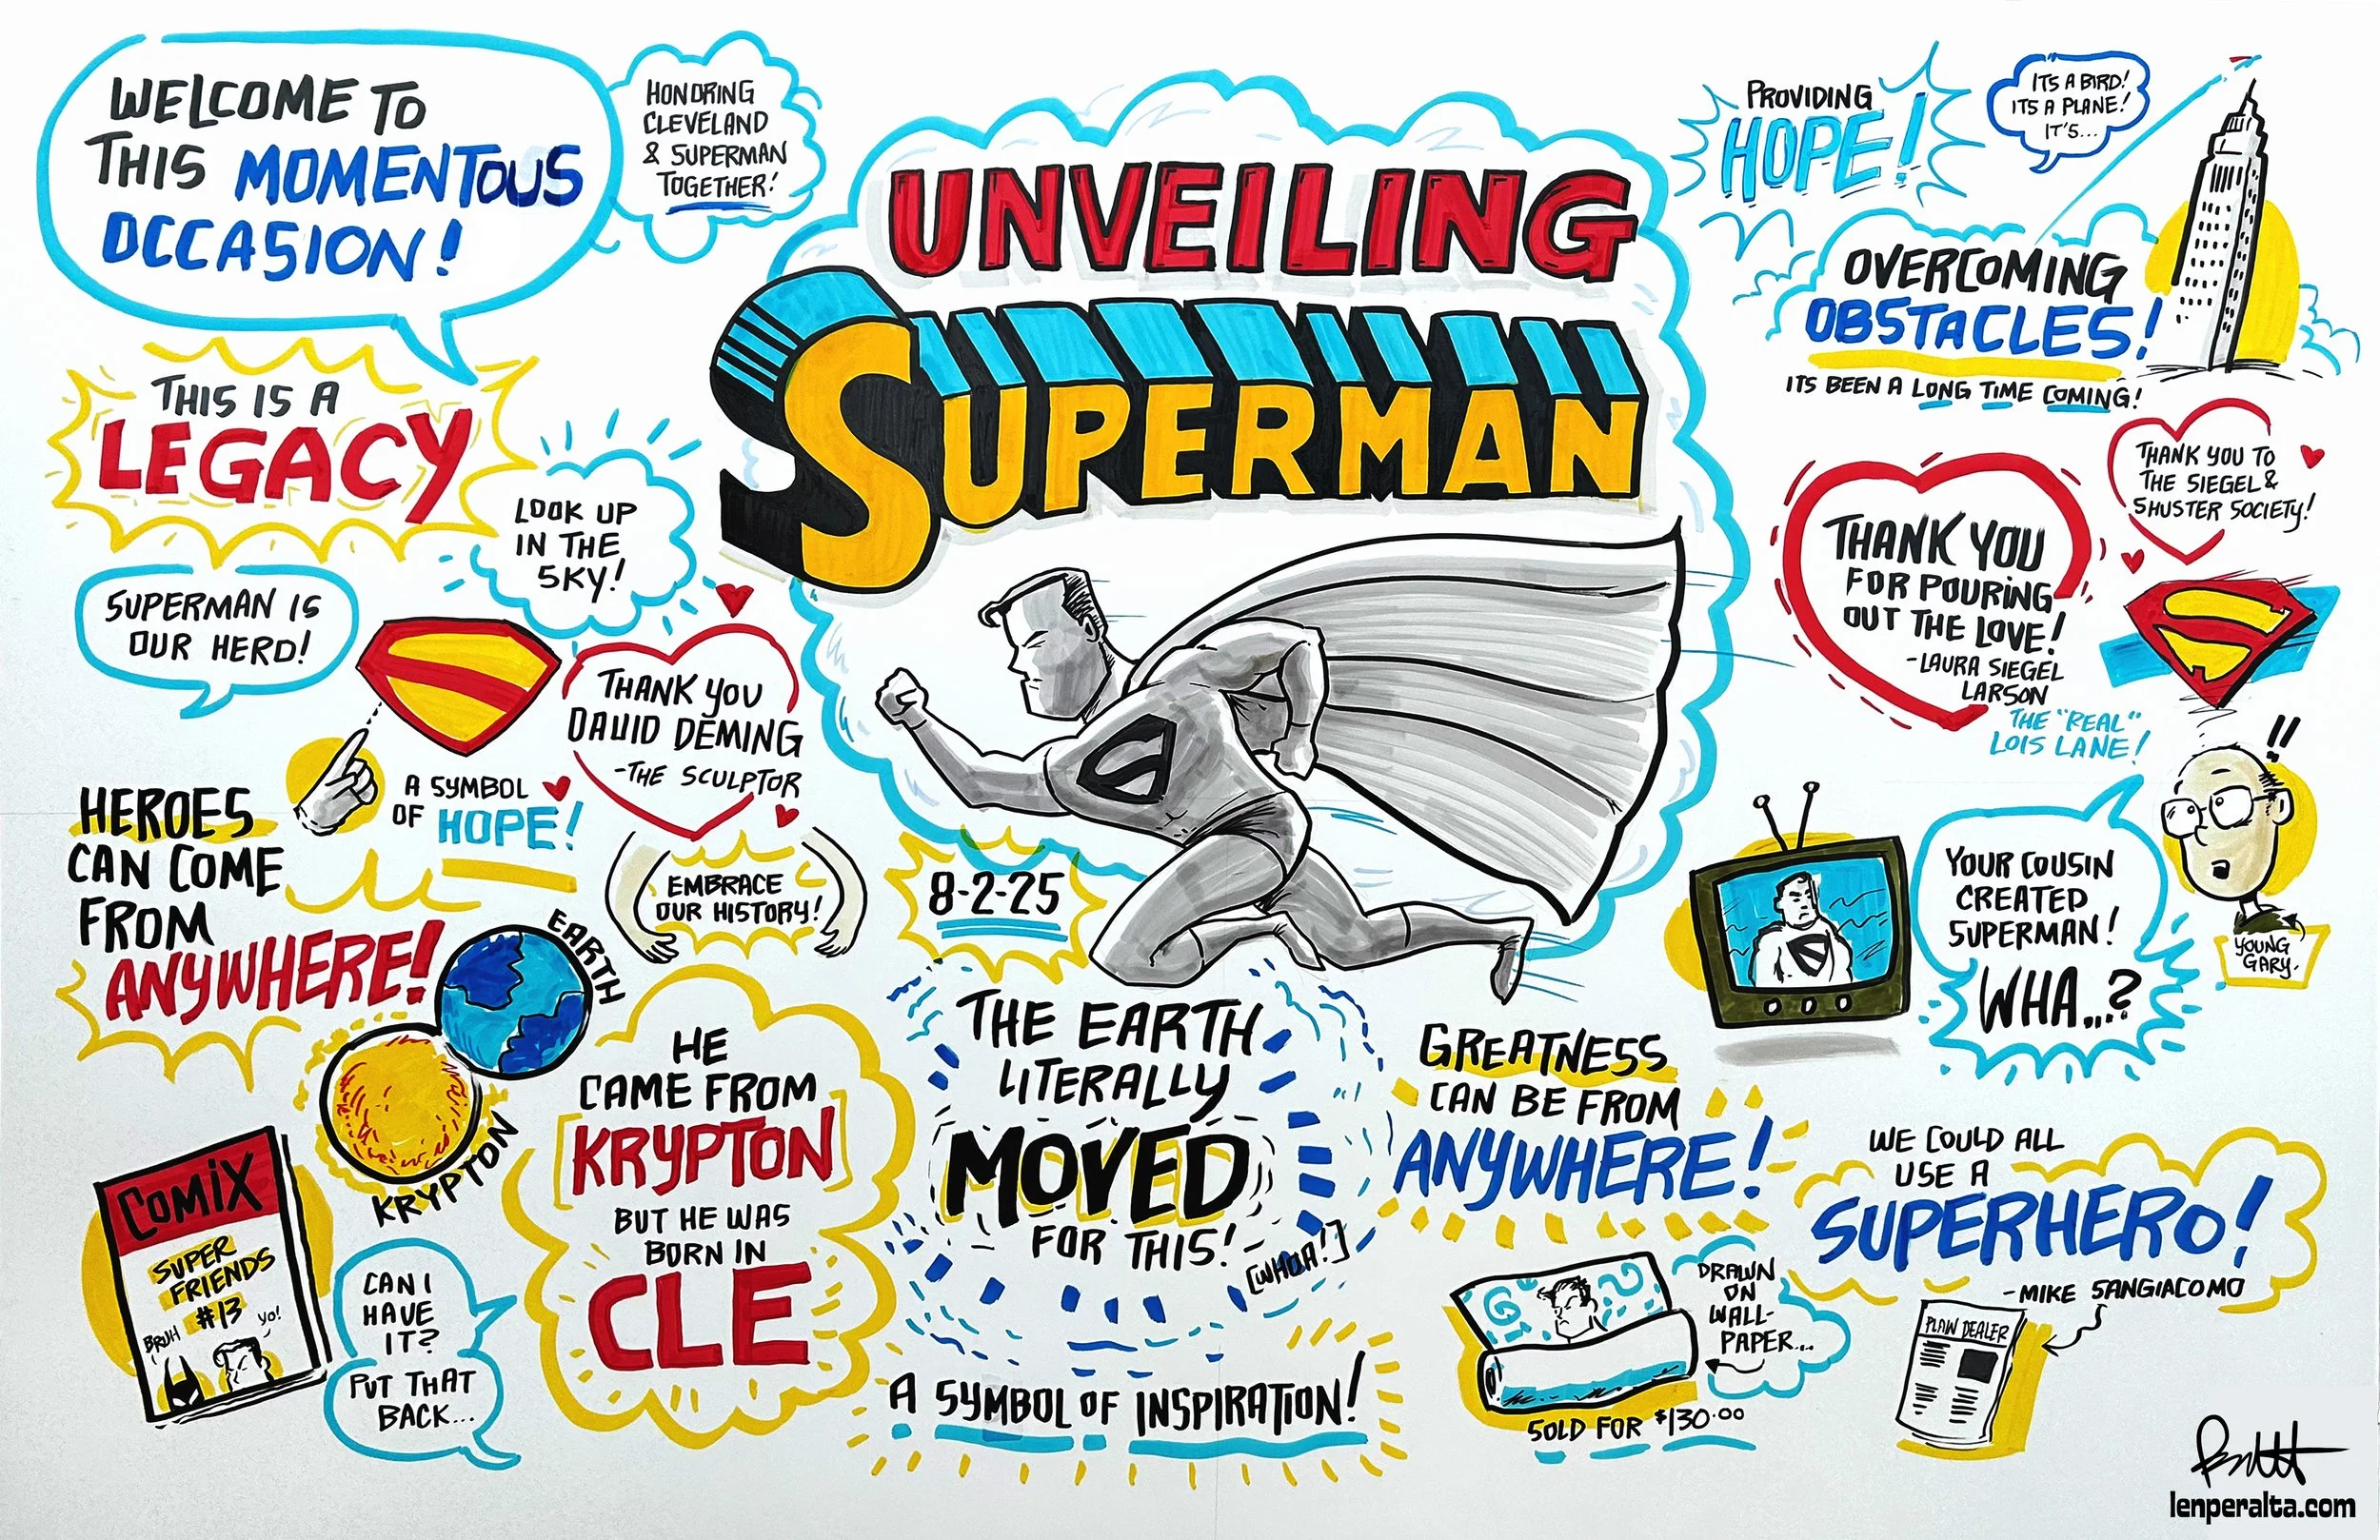 WELCOME TO
THIS MOMENTOUS
OCCASION!
HONORING
CLEVELAND
& SUPERMAN
TOGETHER!
UNVEILING
SUPERMAN
PROVIDING
HOPE!
ITS A BIRD!
ITS A PLANE!
IT'S...
OVERCOMING
OBSTACLES!
ITS BEEN A LONG TIME COMING!
THIS IS A
LEGACY
LOOK UP
IN THE
SKY!
THANK YOU TO
THE SIEGEL &
SHUSTER SOCIETY!
THANK YOU
FOR POURING
OUT THE LOVE!
-LAURA SIEGEL
LARSON
THE "REAL"
LOIS LANE!
SUPERMAN IS
OUR HERO!
THANK YOU
DAVID DEMING
-THE SCULPTOR
A SYMBOL
OF HOPE!
HEROES
CAN COME
FROM
ANYWHERE!
EMBRACE
OUR HISTORY!
8-2-25
!!
YOUR COUSIN
CREATED
SUPERMAN!
WHA...?
YOUNG
GARY.
EARTH
KRYPTON
HE
CAME FROM
[KRYPTON]
BUT HE WAS
BORN IN
CLE
THE EARTH
LITERALLY
MOVED
FOR THIS!
[WHOA!]
GREATNESS
CAN BE FROM
ANYWHERE!
WE COULD ALL
USE A
SUPERHERO!
-MIKE SANGIACOMO
PLAIN DEALER
COMIX
SUPER
FRIENDS
#13
BRUH
YO!
CAN I
HAVE
IT?
PUT THAT
BACK...
A SYMBOL OF INSPIRATION!
DRAWN
ON
WALL-
PAPER...
SOLD FOR $130.00
lenperalta.com